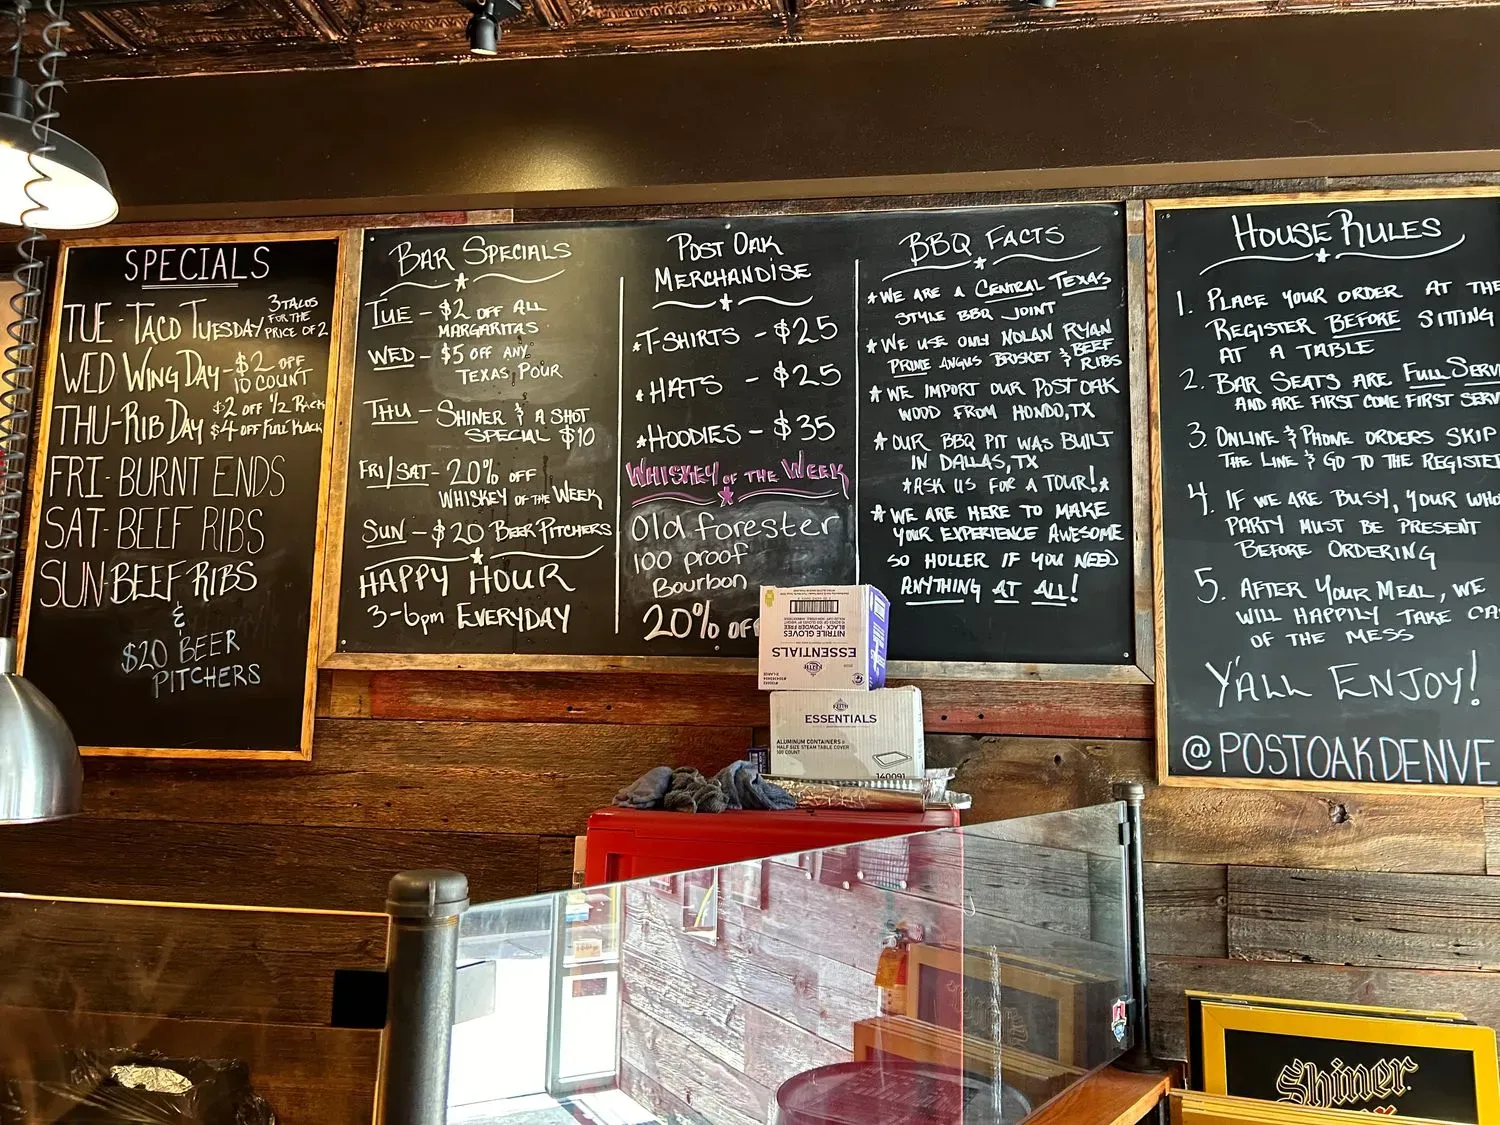 SPECIALS
TUE - TACO TUESDAY 3 TACOS
FOR THE
PRICE OF 2
WED WING DAY - $2 OFF
10 COUNT
THU - RIB DAY $2 OFF 1/2 RACK
$4 OFF FULL RACK
FRI - BURNT ENDS
SAT - BEEF RIBS
SUN - BEEF RIBS
&
$20 BEER
PITCHERS
BAR SPECIALS
TUE - $2 OFF ALL
MARGARITAS
WED - $5 OFF ANY
TEXAS POUR
THU - SHINER & A SHOT
SPECIAL $10
FRI/SAT - 20% OFF
WHISKEY OF THE WEEK
SUN - $20 BEER PITCHERS
HAPPY HOUR
3-6pm EVERYDAY
POST OAK
MERCHANDISE
T-SHIRTS - $25
HATS - $25
HOODIES - $35
WHISKEY OF THE WEEK
Old forester
100 proof
Bourbon
20% OFF
BBQ FACTS
WE ARE A CENTRAL TEXAS
STYLE BBQ JOINT
WE USE ONLY NOLAN RYAN
PRIME ANGUS BRISKET & BEEF
RIBS
WE IMPORT OUR POST OAK
WOOD FROM HONDO, TX
OUR BBQ PIT WAS BUILT
IN DALLAS, TX
*ASK US FOR A TOUR!*
WE ARE HERE TO MAKE
YOUR EXPERIENCE AWESOME
SO HOLLER IF YOU NEED
ANYTHING AT ALL!
HOUSE RULES
1. PLACE YOUR ORDER AT THE
REGISTER BEFORE SITTING
AT A TABLE
2. BAR SEATS ARE FULL SERV
AND ARE FIRST COME FIRST SERV
3. ONLINE & PHONE ORDERS SKIP
THE LINE & GO TO THE REGISTER
4. IF WE ARE BUSY, YOUR WHO
PARTY MUST BE PRESENT
BEFORE ORDERING
5. AFTER YOUR MEAL, WE
WILL HAPPILY TAKE CA
OF THE MESS
Y'ALL ENJOY!
@POSTOAKDENVE
ESSENTIALS
NITRILE GLOVES
BLACK - POWDER FREE
ESSENTIALS
ALUMINUM CONTAINERS
HALF SIZE STEAM TABLE COVER
100 COUNT
140091
Shiner